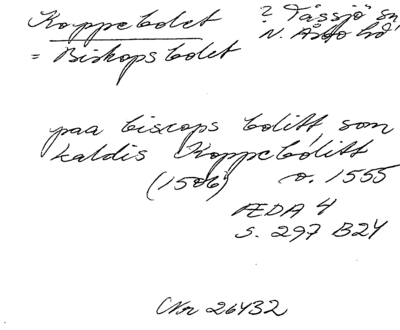 Koppebolet ? Tåssjö sn
= Biskopsbolet N. Åsbo hd
paa biscops bolitt, som
kaldis Koppebolitt
(1506) o. 1555
ÆDA 4
s. 297 B24
Cnr 26432